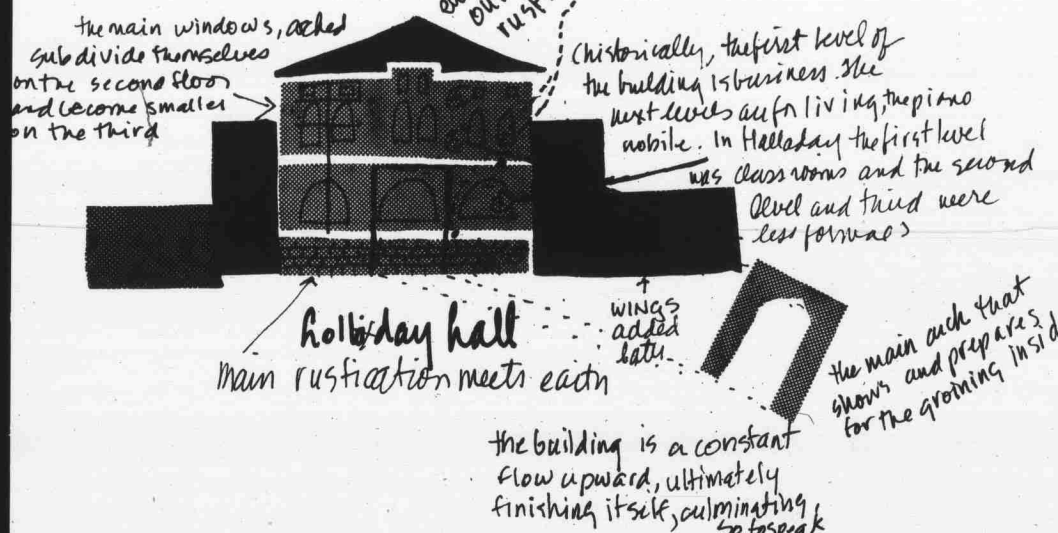 the main windows, arched
subdivide themselves
on the second floor
and become smaller
on the third
out
rust
(historically, the first level of
the building is business. The
next levels are for living, the piano
nobile. In Halladay the first level
was classrooms and the second
level and third were
less formal)
wings
added
later
holliday hall
main rustication meets earth
the main arch that
shows and prepares
for the groining insid
the building is a constant
flow upward, ultimately
finishing itself, culminating,
so to speak